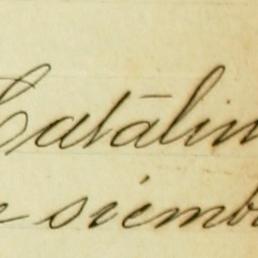 Catalin
e siemb